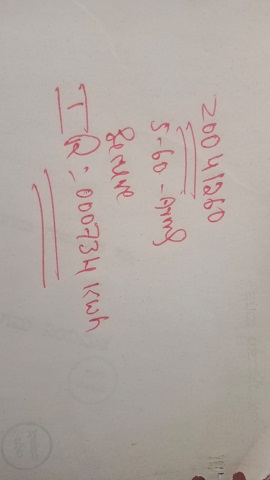 20041260
5-60-Amp
Secure
IR = 000734 kwh